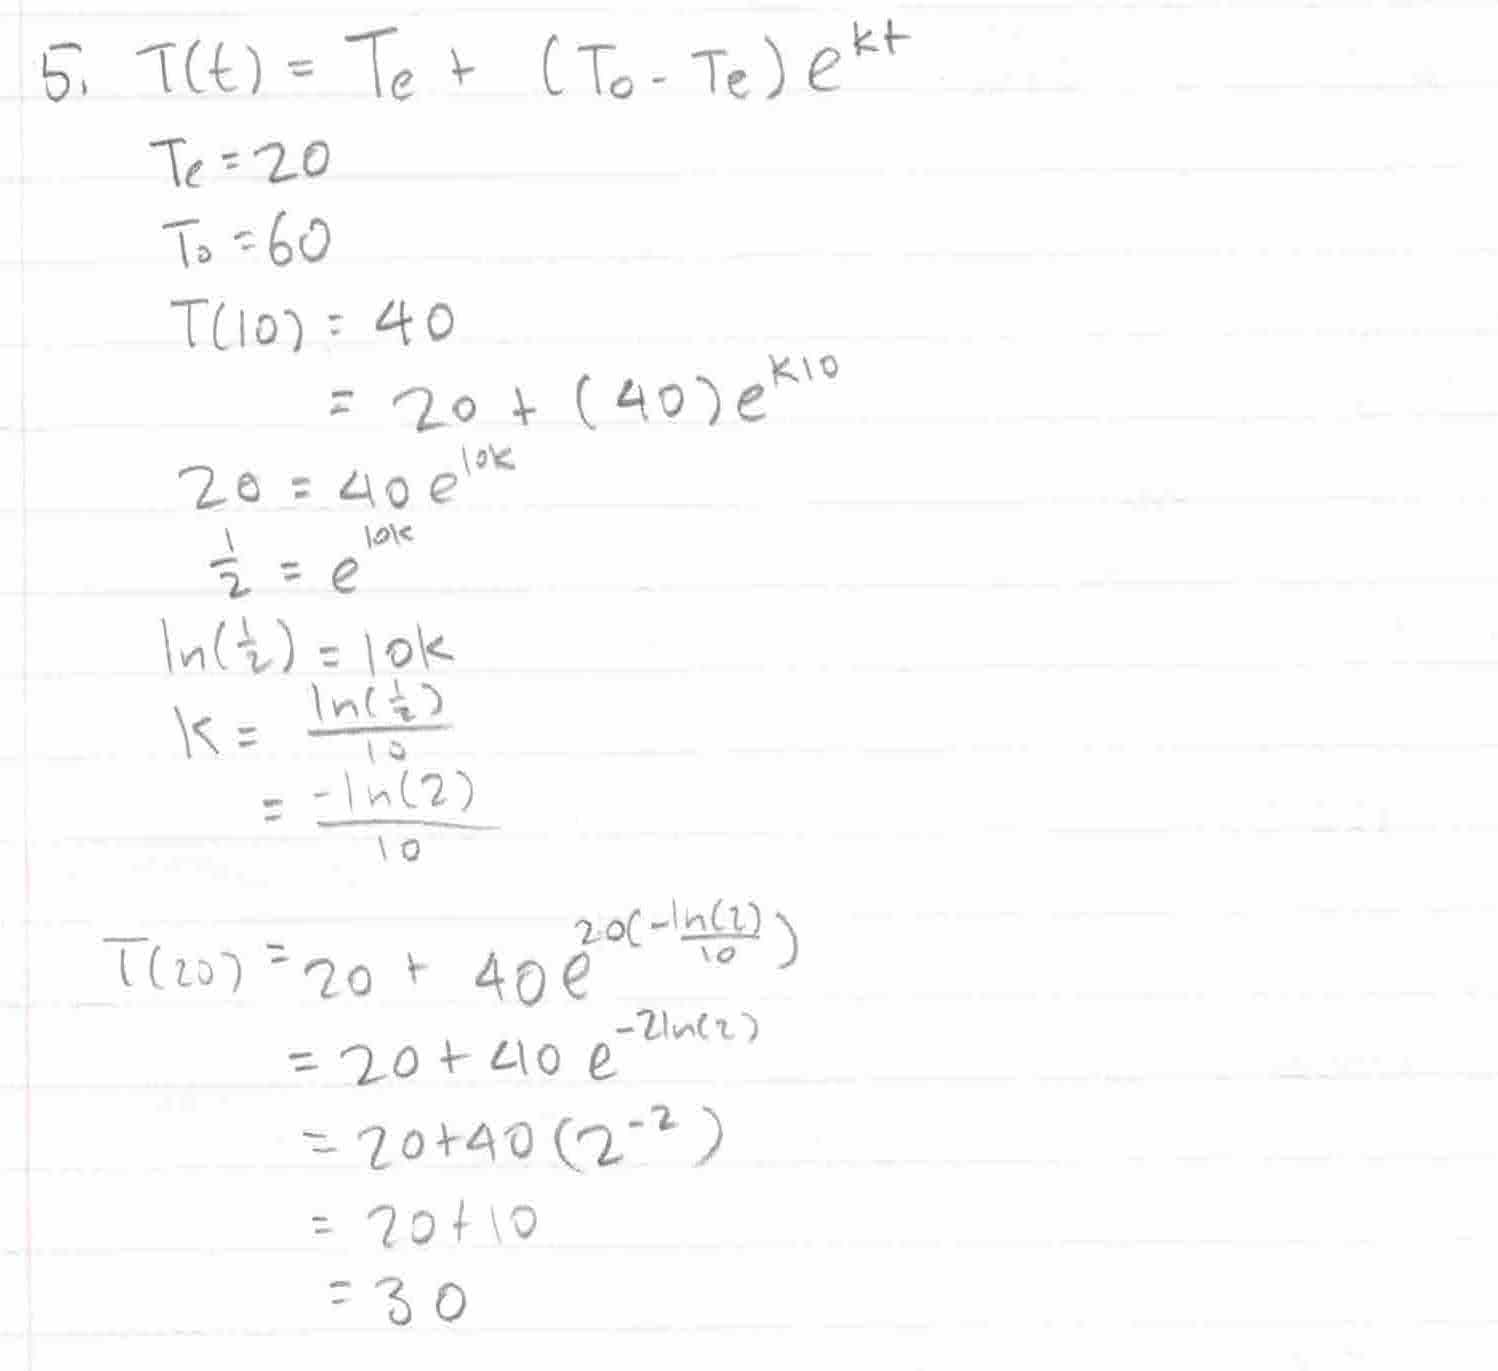 5. T(t) = Te + (To - Te) e^kt
Te = 20
To = 60
T(10) = 40
= 20 + (40) e^k10
20 = 40 e^10k
1/2 = e^10k
ln(1/2) = 10k
k = ln(1/2)/10
= -ln(2)/10
T(20) = 20 + 40 e^20(-ln(2)/10)
= 20 + 40 e^-2ln(2)
= 20 + 40 (2^-2)
= 20 + 10
= 30